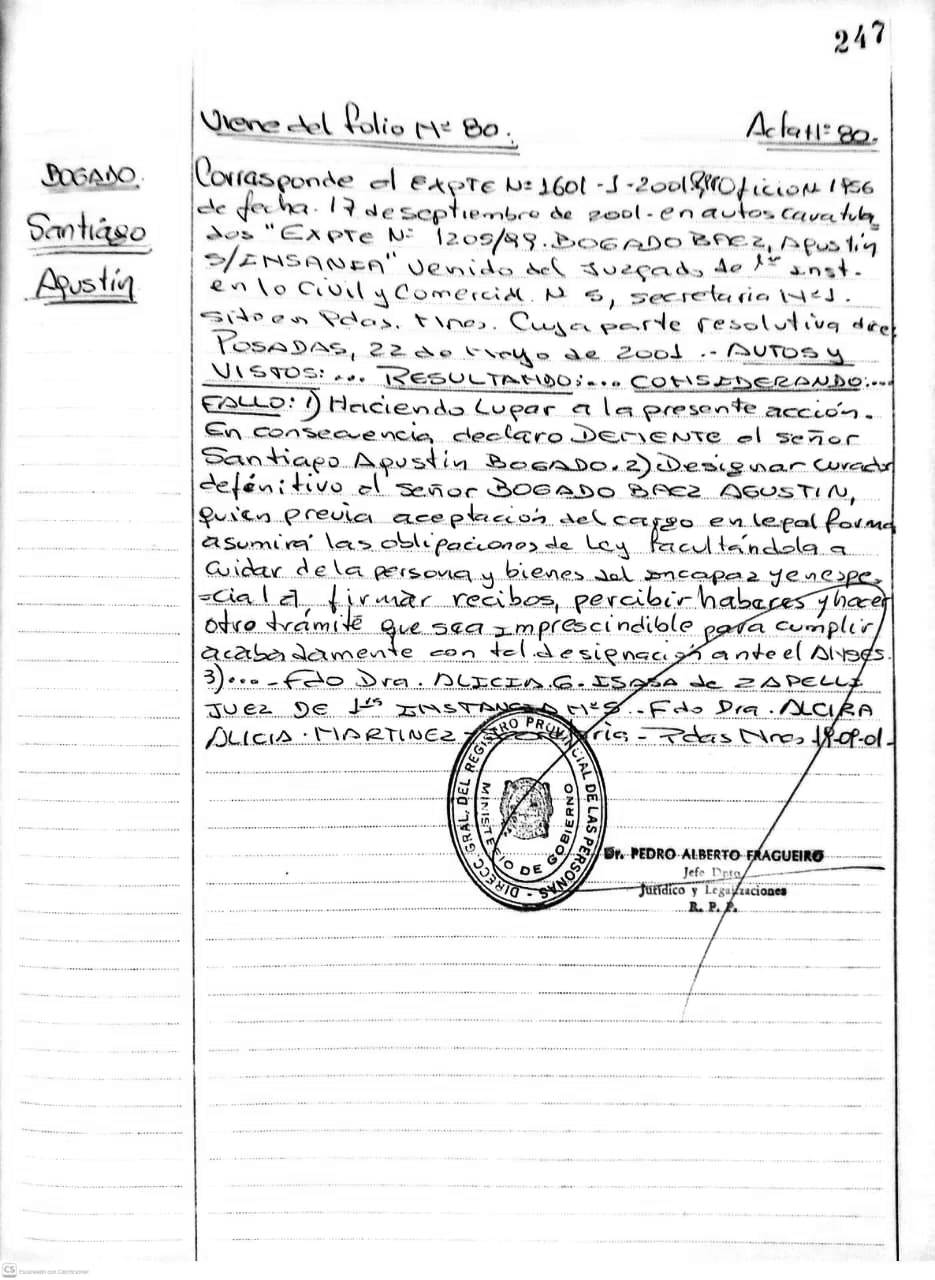 247
Viene del folio Nº 80.
Acta Nº 80.
BOGADO.
Santiago
Agustín
Corresponde al EXPTE Nº 1601-1-2001 Oficio Nº 1956
de fecha. 17 de septiembre de 2001- en autos caratula
dos "EXPTE Nº 1205/99. BOGADO BAEZ, Agustín
S/INSANIA" venido del Juzgado de 1ra Inst.
en lo Civil y Comercial. N 5, secretaria Nº 1.
sito en Pdas. Mnes. Cuya parte resolutiva dice:
POSADAS, 22 de Mayo de 2001 .- AUTOS y
VISTOS: ... RESULTANDO: ... CONSIDERANDO: ...
FALLO: 1) Haciendo Lugar a la presente acción.
En consecuencia declaro DEMENTE al señor
Santiago Agustín BOGADO. 2) Designar curador
definitivo al señor BOGADO BAEZ AGUSTIN,
quien previa aceptación del cargo en legal forma
asumirá las obligaciones de Ley facultándola a
cuidar de la persona y bienes del incapaz y en espe
=cial a, firmar recibos, percibir haberes y hacer
otro trámite que sea imprescindible para cumplir
acabadamente con tal designación ante el ANSES.
3)... - Fdo Dra. ALICIA G. ISASA de ZAPELLI
JUEZ DE 1ra INSTANCIA Nº 5 .. Fdo Dra. ALCIRA
ALICIA MARTINEZ - Secretaria - Pdas Mnes 19-09-01-
DIRECC. GRAL. DEL REGISTRO PROVINCIAL DE LAS PERSONAS
MINISTERIO DE GOBIERNO
Dr. PEDRO ALBERTO FRAGUEIRO
Jefe Dpto.
Jurídico y Legalizaciones
R. P. P.
CS Escaneado con CamScanner